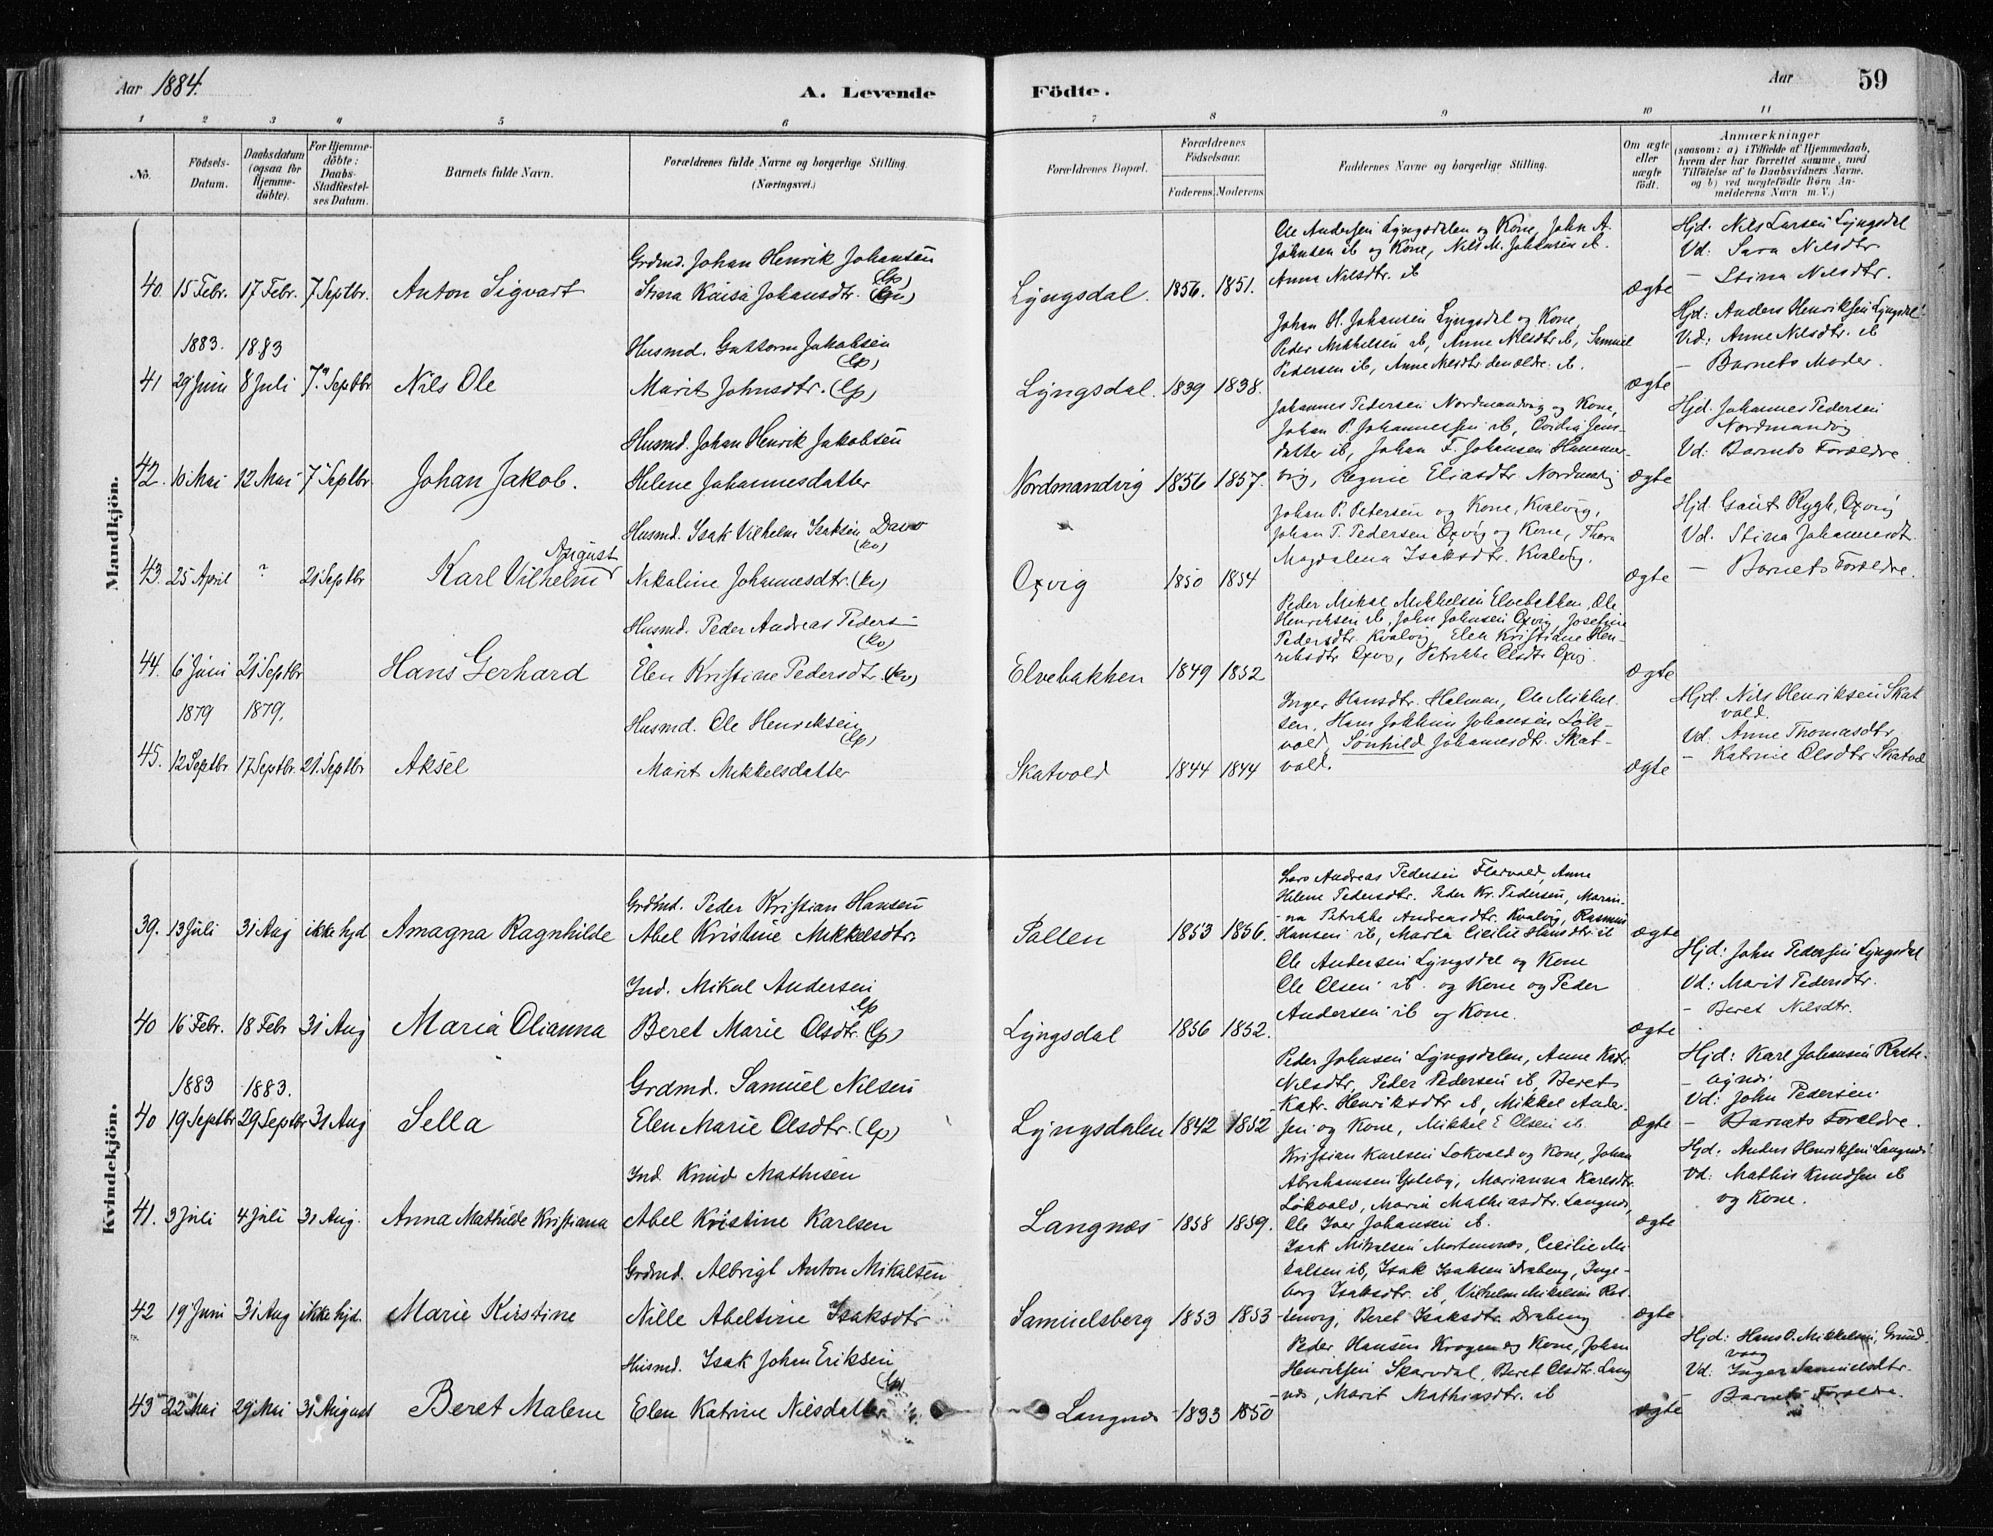 Aar 1884.
A. Levende
Födte.
Aar
59
1 2 3 4 5 6 7 8 9 10 11
No.
Födsels-
Datum.
Daabsdatum
(ogsaa for
Hjemme-
döbte).
For Hjemme-
döbte:
Daabs-
Stadfæstel-
ses Datum.
Barnets fulde Navn.
Forældrenes fulde Navne og borgerlige Stilling.
(Næringsvei.)
Forældrenes Bopæl.
Forældrenes
Födselsaar.
Faderens. Moderens.
Faddernes Navne og borgerlige Stilling.
Om ægte
eller
uægte
födt.
Anmærkninger
(saasom: a) i Tilfælde af Hjemmedaab,
hvem der har forrettet samme, med
Tilföielse af to Daabsvidners Navne,
og b) ved uægtefödte Börn An-
melderens Navn m. V.)
Mandkjön.
40. 15 Febr. 17 Febr. 7 Septbr. Anton Sigvart
Grdmd. Johan Henrik Johansen (lp)
Stina Kaisa Johansdtr.
Lyngsdal. 1856. 1851.
Ole Andersen Lyngsdalen og Kone, John A.
Johnsen ib og Kone, Nils M. Johansen ib.
Anne Nilsdtr. ib
ægte
Hjd. Nils Larsen Lyngsdal
Vd: Sara Nilsdtr
— Stina Nilsdtr.
1883. 1883
41 29 Juni 8 Juli 7 Septbr Nils Ole
Husmd. Guttorm Jakobsen (lp)
Marit Johnsdtr. (lp)
Lyngsdal. 1839 1838.
Johan H. Johansen Lyngsdal og Kone,
Peder Mikkelsen ib, Anne Nilsdtr ib, Samuel
Pedersen ib, Anne Nilsdtr den ældre ib.
ægte
Hjd: Anders Henriksen Lyngsdal
Vd: Anne Nilsdtr. ib
— Barnets Moder.
42. 10 Mai 12 Mai 7 Septbr Johan Jakob.
Husmd. Johan Henrik Jakobsen
Helene Johannesdatter
Nordmandvig 1856 1857.
Johannes Pedersen Nordmandvig og Kone,
Johan P. Johannessen ib, Ovidia Jens-
datter ib, Johan F. Johansen Hammer-
vig, Regine Eliasdtr Nordmandvig
ægte
Hjd. Johannes Pedersen
Nordmandvig
Vd: Barnets Forældre
43. 25 April ? 21 Septbr Karl Vilhelm August
Husmd. Isak Vilhelm Isaksen (kv)
Nikoline Johannesdtr. (kv)
Oxvig 1850 1854
Johan P. Petersen og Kone, Kvalvig,
Johan T. Pedersen Oxvig og Kone, Thora
Magdalena Isaksdtr. Kvalvig.
ægte
Hjd. Gaut Rygh, Oxvig
Vd. Stina Johannesdt.
— Barnets Forældre.
44. 6 Juni 21 Septbr Hans Gerhard
Husmd. Peder Andreas Peders— (kv)
Elen Kristine Pedersdtr (kv)
Elvebakken 1849 1852
Peder Mikal Mikkelsen Elvebakken, Ole
Henriksen ib, John Johnsen Oxvig, Josefine
Pedersdtr. Kvalvig, Elen Kristiane Hen-
riksdtr Oxvig, Petrikke Olsdtr Oxvig.
ægte
1879 1879.
45. 12 Septbr 17 Septbr. 21 Septbr Aksel
Husmd. Ole Henriksen (lp)
Marit Mikkelsdatter
Skatvold 1844 1844
Inger Hansdtr. Holmen, Ole Mikkel
sen, Hans Jokkum Johansen Løk-
vold, Sønhild Johannesdtr. Skat-
vold.
ægte
Hjd. Nils Henriksen Skat
vold.
Vd. Anne Thomasdtr
— Katrine Olsdtr Skatvold
Kvindekjön.
39. 13 Juli 31 Aug ikke hjd Amagna Ragnhilde
Grdmd. Peder Kristian Hansen
Abel Kristine Mikkelsdtr.
Pollen 1853 1856.
Lars Andreas Pedersen Flatvold, Anne
Helene Pedersdtr. Peder Kr. Pedersen, Marin-
na Petrikke Andreasdtr. Kvalvig, Rasmus
Hansen ib, Marta Cecilie Hansdtr ib
ægte
40 16 Febr. 18 Febr 31 Aug Maria Olianna
Ind. Mikal Andersen lp
Beret Marie Olsdtr. (lp)
Lyngsdal 1856 1852.
Ole Andersen Lyngsdal og Kone
Ole Olsen ib. og Kone og Peder
Andersen ib og Kone.
ægte
Hjd: John Pedersen Lyngsdal
Vd: Marit Pedersdtr.
— Beret Nilsdtr.
1883 1883.
40 19 Septbr 29 Septbr 31 Aug Sella
Grdmd. Samuel Nilsen
Elen Marie Olsdtr. (lp)
Lyngsdalen 1842 1852
Peder Johnsen Lyngsdalen, Anne Katr.
Nilsdtr, Peder Pedersen ib, Beret
Katr. Henriksdtr ib, Mikkel Ander-
sen og Kone, Mikkel E Olsen ib.
ægte
Hjd: Karl Johansen Raste-
bynd
Vd: John Pedersen
— Barnets Forældre.
41. 3 Juli 4 Juli 31 Aug. Anna Mathilde Kristiana
Ind Knud Mathisen
Abel Kristine Karlsen
Langnæs 1858 1859.
Kristian Karlsen Lokvold og Kone, Johan
Abrahamsen Ypleby, Marianna Karlsdtr.
Løkvold, Maria Mathiasdtr. Langnæs,
Ole Iver Johansen ib.
ægte
Hjd. Anders Henriksen Langnæs
Vd: Mathis Knudsen ib
og Kone.
42 19 Juni 31 Aug ikke hjd. Marie Kirstine
Grdmd. Albrigt Anton Mikalsen
Nille Abeltine Isaksdtr
Samuelsberg 1853 1853
Isak Mikalsen Mortensnæs, Cecilie Mi-
kalsen ib, Isak Isaksen Draberg, Inge-
borg Isaksdtr. ib, Vilhelm Mikalsen Ros-
senvig, Beret Isaksdtr. Draberg
ægte
43 22 Mai 29 Mai 31 August Beret Malene
Husmd. Isak Johan Eriksen (lp)
Elen Katrine Nilsdatter
Langnæs 1833 1850
Peder Hansen Krogen og Kone, Johan
Henriksen Skarvdal, Beret Olsdtr. Lang
næs, Marit Mathiasdtr. ib
ægte
Hjd: Hans O. Mikkelsen, Grund-
vaag
Vd: Inger Samuelsdtr.
Barnets Forældre.